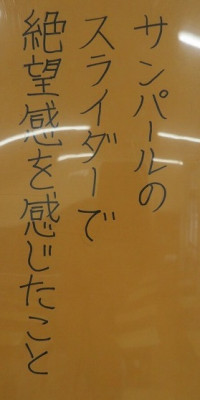 サンパールの
スライダーで
絶望感を感じたこと